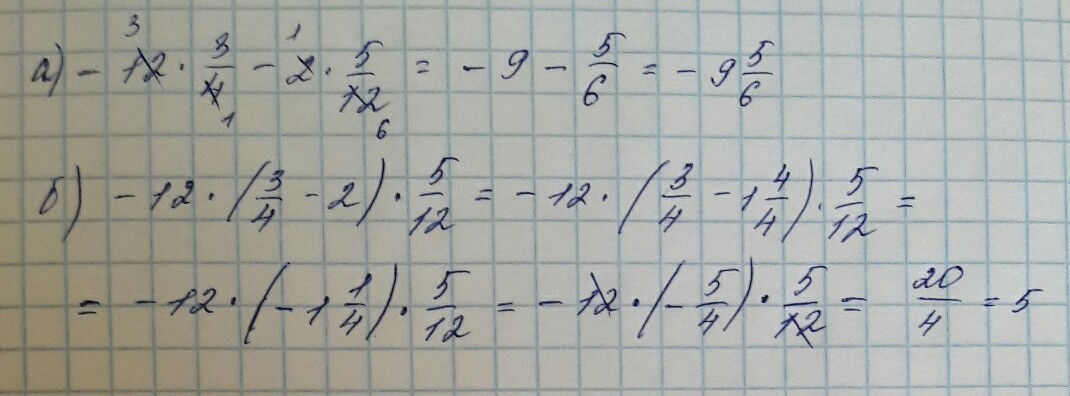 а) - 12 · 3/4 - 2 · 5/12 = - 9 - 5/6 = - 9 5/6
б) - 12 · (3/4 - 2) · 5/12 = - 12 · (3/4 - 1 4/4) · 5/12 =
= - 12 · (- 1 1/4) · 5/12 = - 12 · (- 5/4) · 5/12 = 20/4 = 5